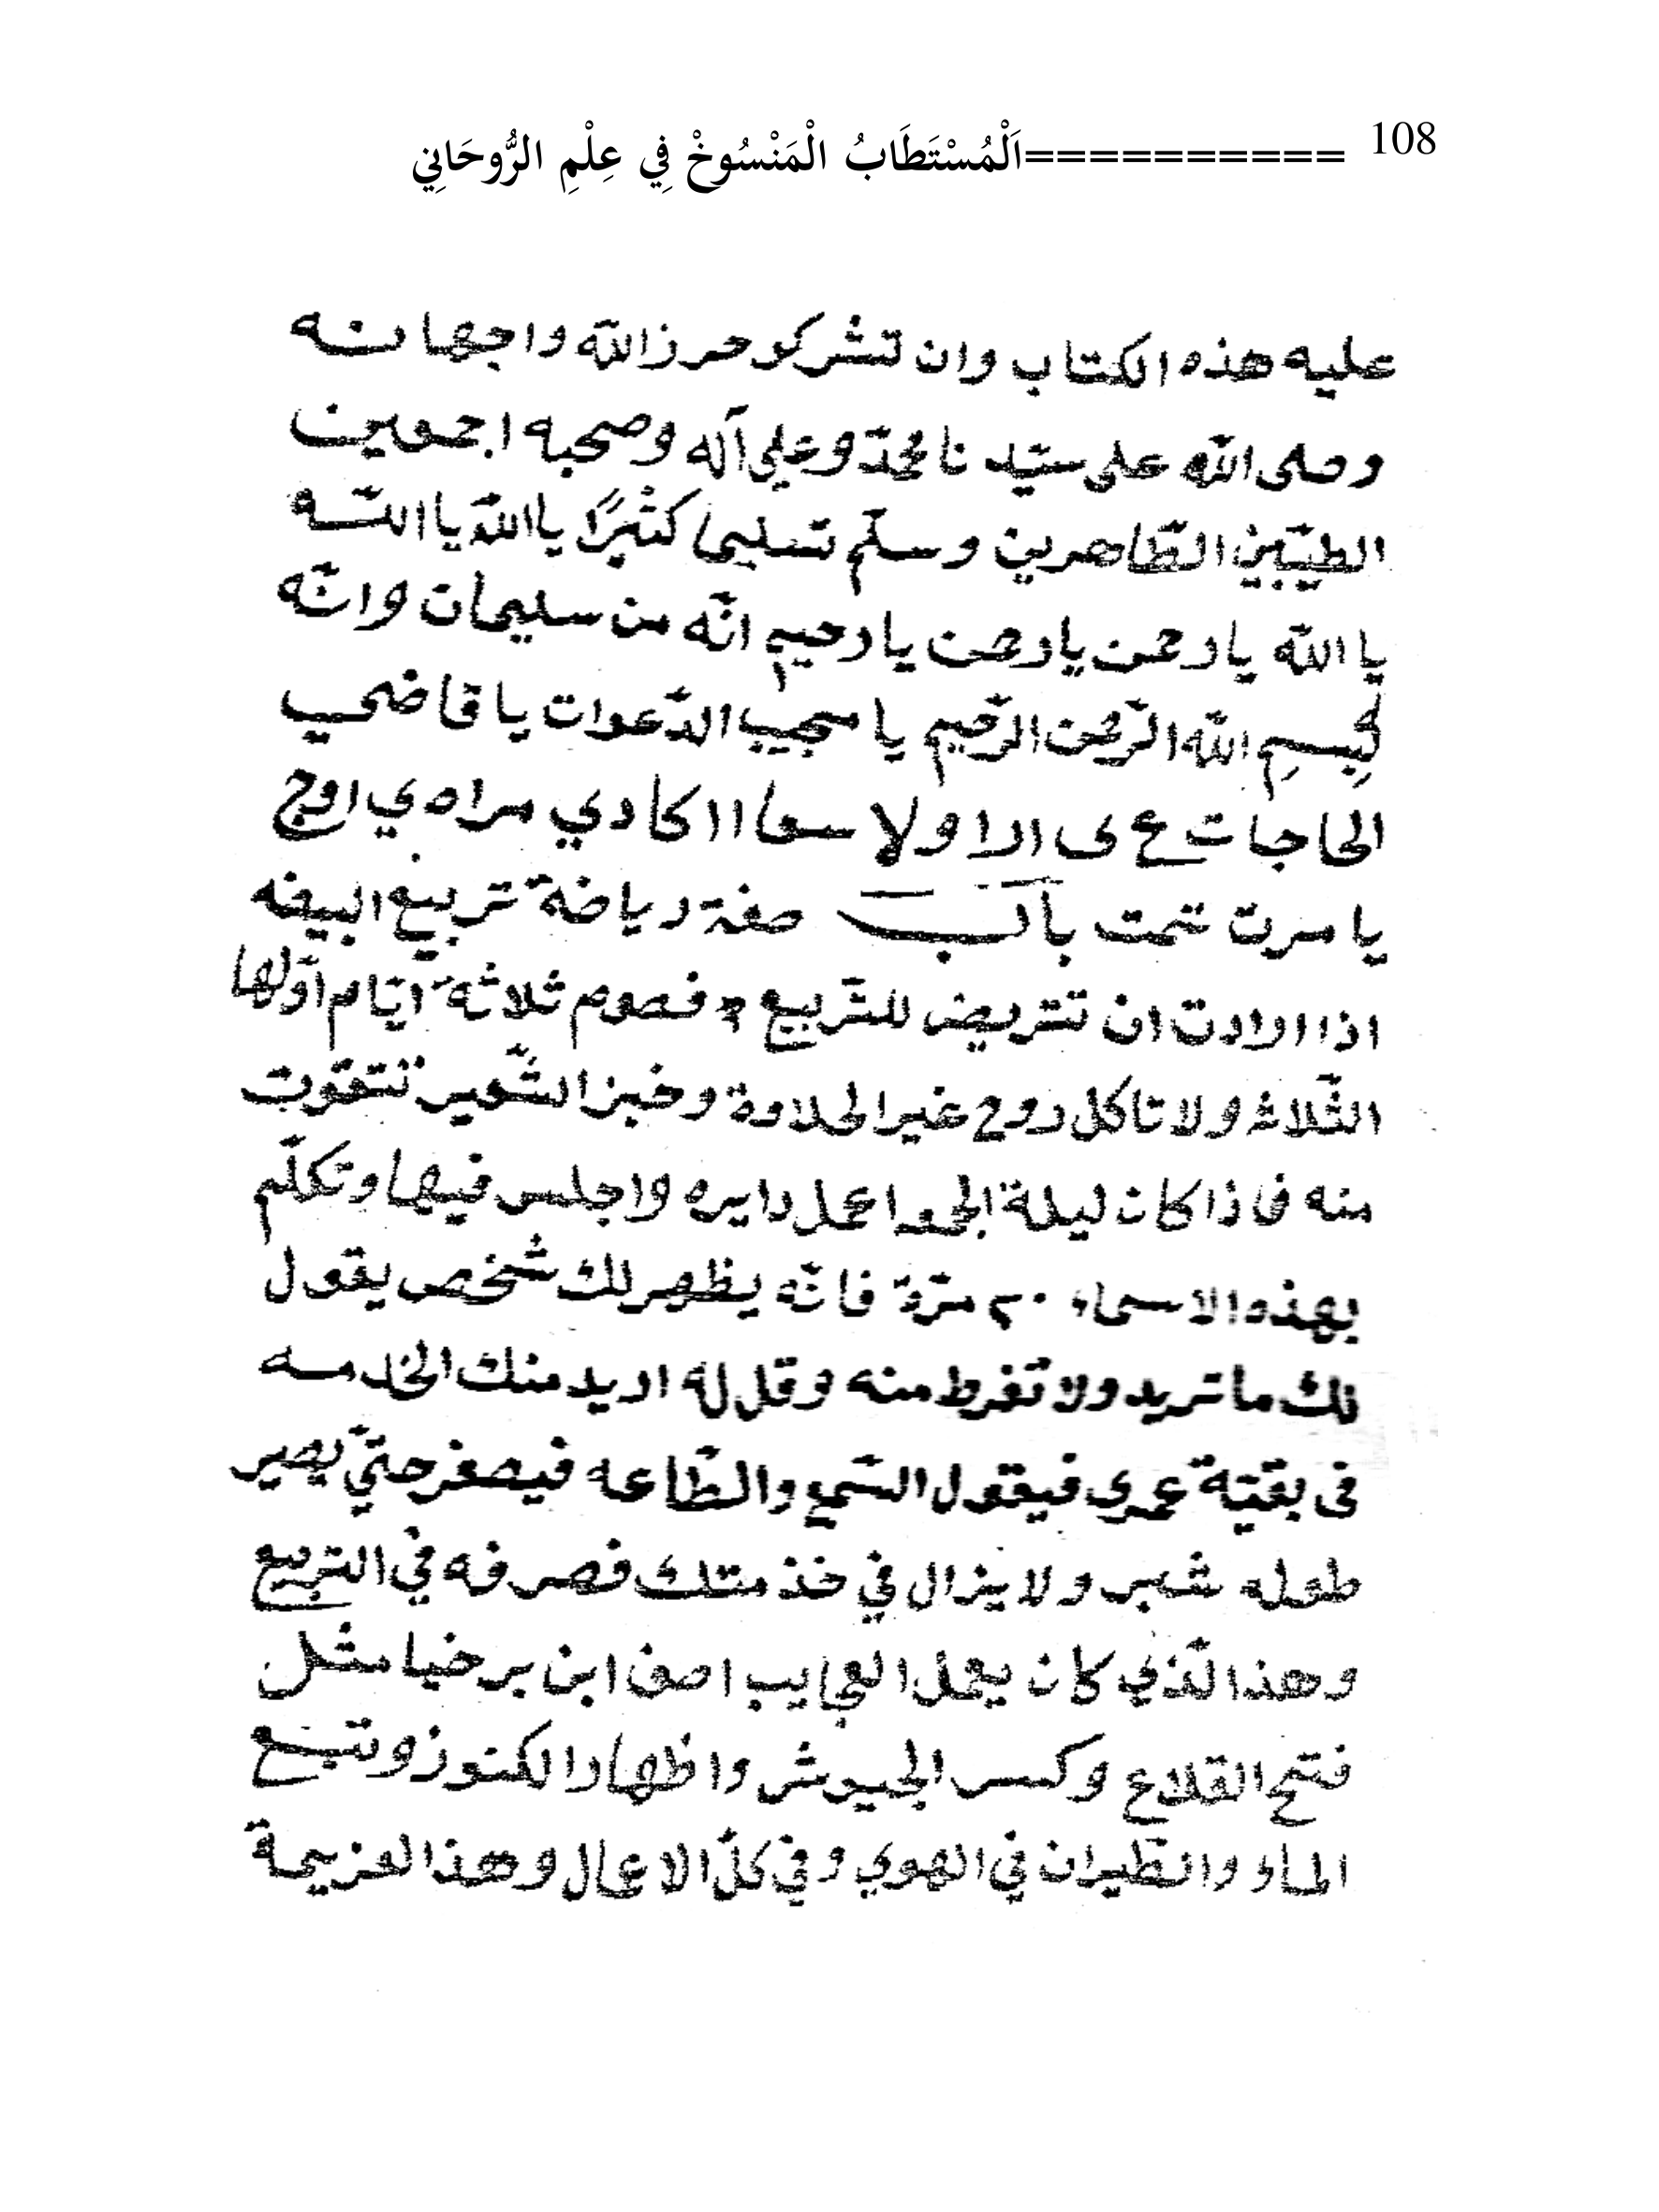 108 ==========اَلْمُسْتَطَابُ الْمَنْسُوخْ فِي عِلْمِ الرُّوحَانِي
عليه هذه الكتاب وان تشركو حرز الله واجهانه
وصلى الله على سيّد نا محمّد وعلي آله وصحبه اجمعين
الطيّبين الطّاهرين وسلّم تسليما كثيرًا يا اللّه يا اللّه
يا اللّه يا رحمن يا رحمن يا رحيم انّه من سليمان وانّه
بِسمِ اللّه الرّحمن الرّحيم يا مجيب الدّعوات يا قاضي
الحاجات ع ى الا ولا سعا اكادي مراه ي اوج
يا سرت تمت صفة رياضة تربيع البيضه
اذا ارادت ان تتريض للتّربيع فصوم ثلاثة ايّام اوّلها
الثّلاث ولا تاكل روح غير الحلاوة وخبز الشّعير تتقوت
منه فاذا كان ليلة الجمعا اعمل دايره واجلس فيها وتكلّم
بهذه الاسماء ٢٠ مرّة فانّه يظهر لك شخص يقول
لك ما تريد ولا تفرط منه وقل له اريد منك الخدمه
فى بقيّة عمرى فيقول السّمع والطّاعه فيصغر حتّي يصير
طوله شبر ولا يزال في خذ متك فصرفه في التربيع
وهذا الّذي كان يعمل العجايب اصف ابن برخيا مثل
فتح القلاع وكسر الجيوش واظهار الكنوز وتبع
الماء والطّيران في الهوي وفي كلّ الاعمال وهذا العزيمة